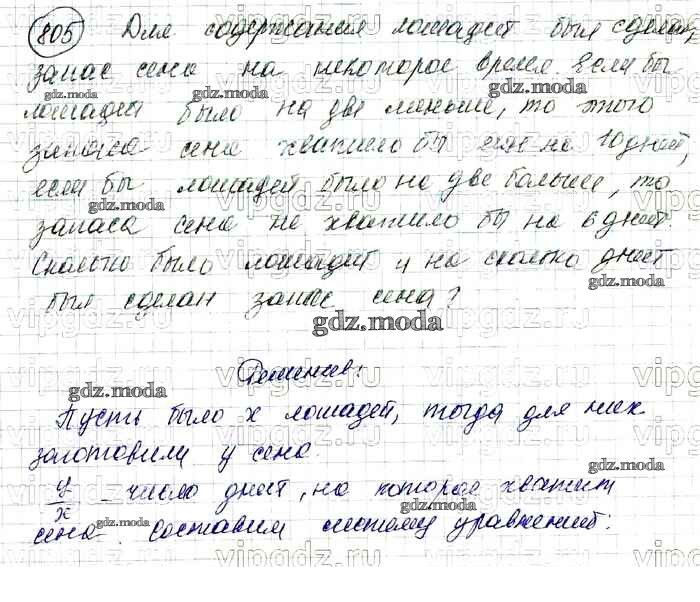 805 Для содержания лошадей был сделан
запас сена на некоторое время. Если бы
лошадей было на две меньше, то этого
запаса сена хватило бы ещё на 10 дней,
если бы лошадей было на две больше, то
запаса сена не хватило бы на 6 дней.
Сколько было лошадей и на сколько дней
был сделан запас сена?
Решение:
Пусть было x лошадей, тогда для них
заготовили y сена.
y/x - число дней, на которое хватит
сена. Составим систему уравнений:
gdz.moda
vipgdz.ru